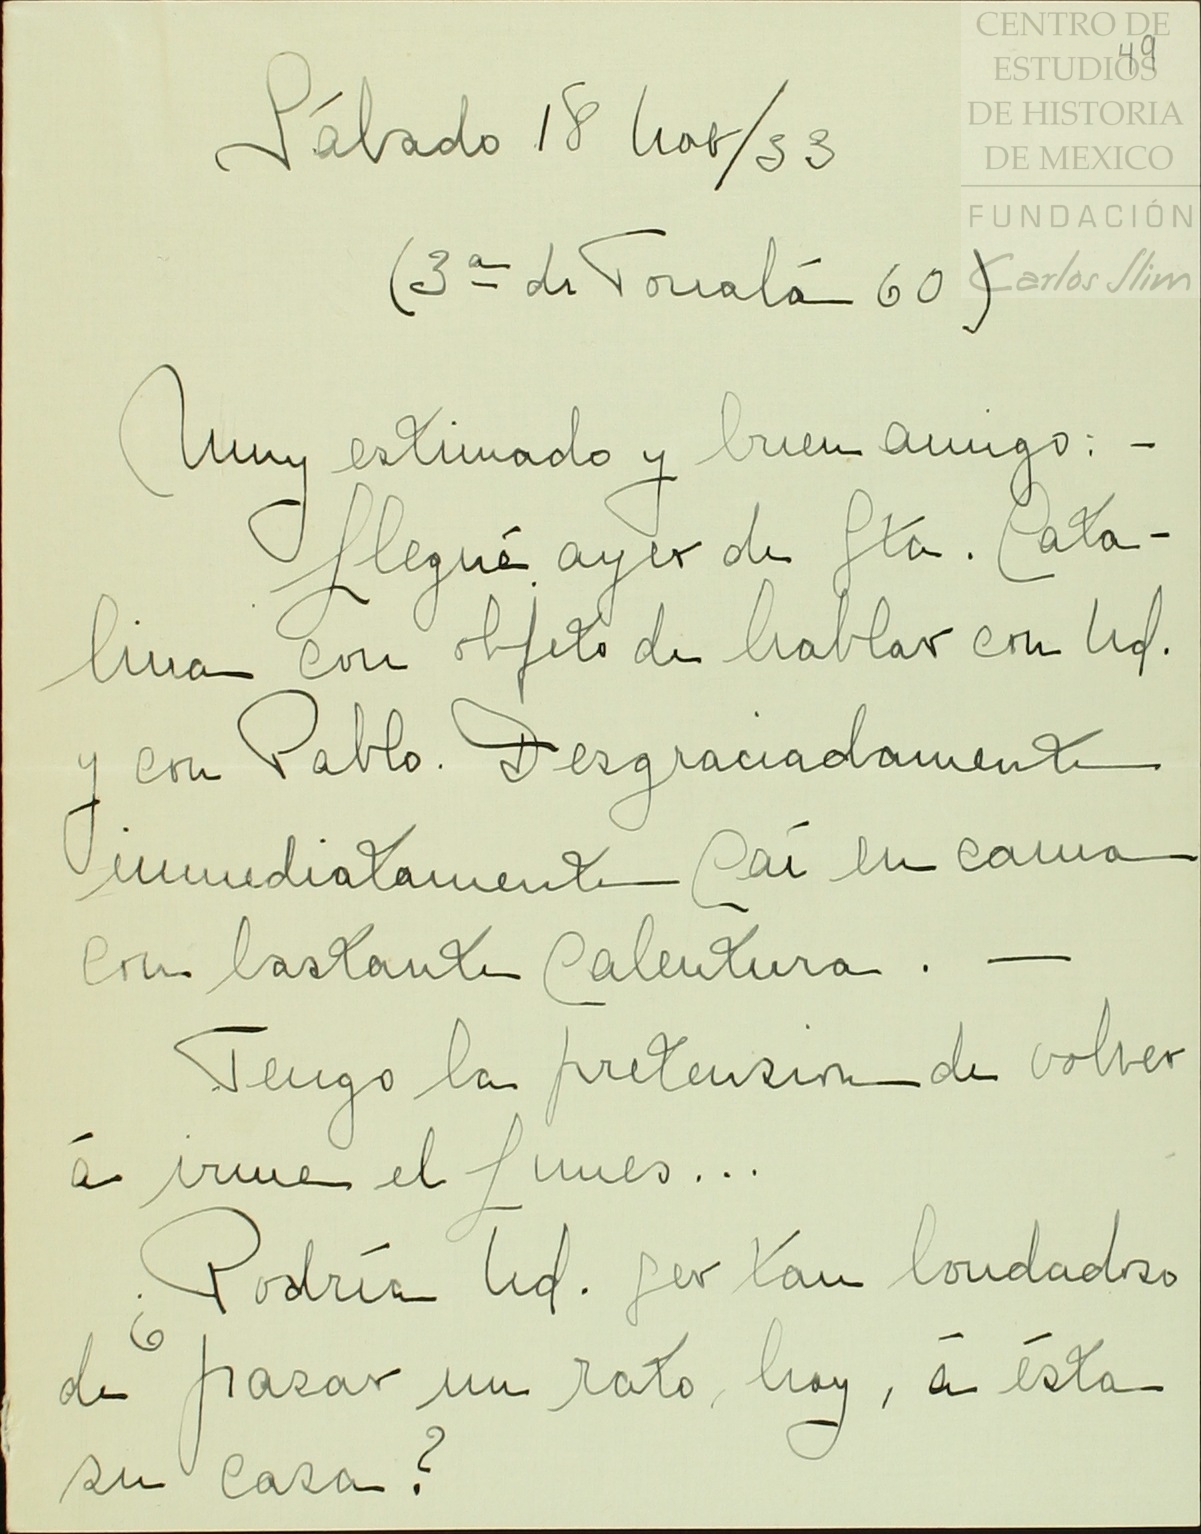 CENTRO DE
ESTUDIOS
DE HISTORIA
DE MEXICO
FUNDACIÓN
Carlos Slim
49
Sábado 18 Nov/33
(3ª de Tonalá 60)
Muy estimado y buen amigo: -
Llegué ayer de Sta. Cata-
lina con objeto de hablar con Ud.
y con Pablo. Desgraciadamente
inmediatamente caí en cama
con bastante calentura. —
Tengo la pretension de volver
á irme el Lunes...
¿Podría Ud. ser tan bondadoso
de pasar un rato, hoy, á ésta
su casa?